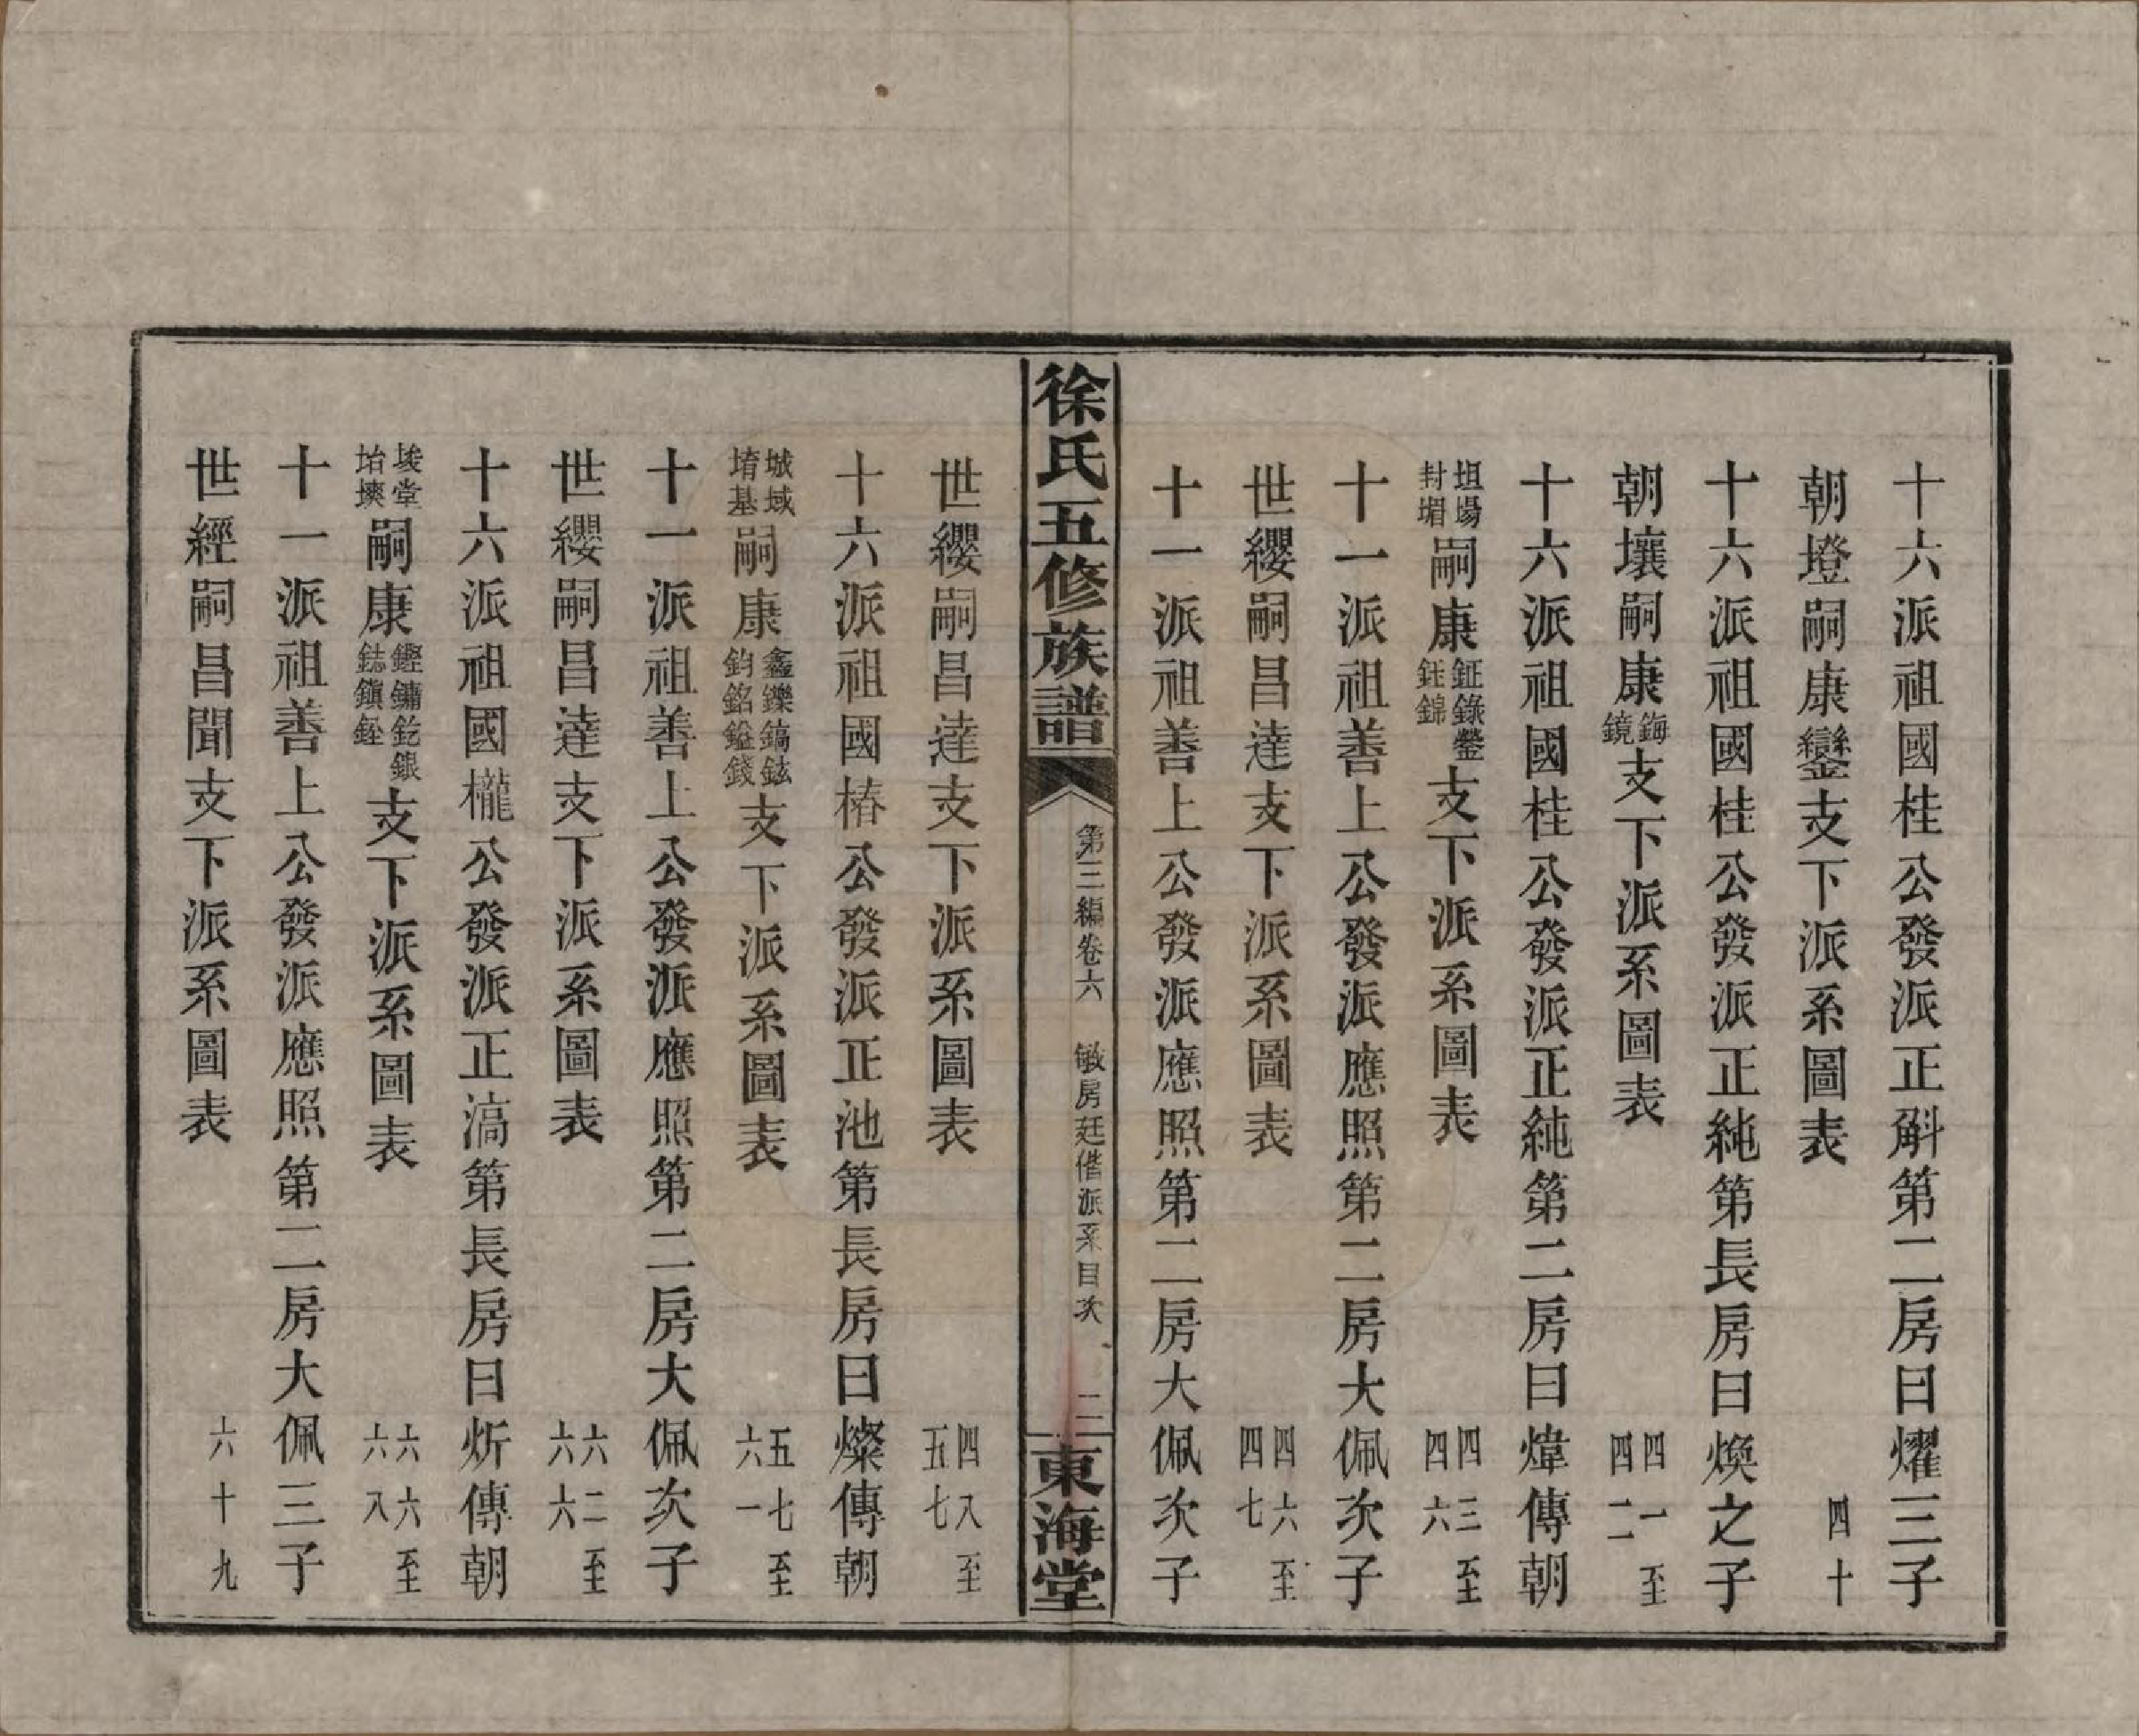 十六派祖國桂公發派正斛第二房曰燿三子
朝墱嗣康鑾支下派系圖表 四十
十六派祖國桂公發派正純第長房曰煥之子
朝壤嗣康鋂鏡支下派系圖表 四一至四二
十六派祖國桂公發派正純第二房曰煒傳朝
坦場封堳嗣康鉦錄鑿鈺錦支下派系圖表 四三至四六
十一派祖善上公發派應照第二房大佩次子
世纓嗣昌達支下派系圖表 四六至四七
十一派祖善上公發派應照第二房大佩次子
徐氏五修族譜 第三編卷六 敏房廷偕派系目次 二 東海堂
世纓嗣昌達支下派系圖表 四八至五七
十六派祖國椿公發派正池第長房曰燦傳朝
城域堉基嗣康鑫鑠鎬鉉鈞銘鎰錢支下派系圖表 五七至六一
十一派祖善上公發派應照第二房大佩次子
世纓嗣昌達支下派系圖表 六二至六六
十六派祖國櫳公發派正滈第長房曰炘傳朝
埈堂坮堧嗣康鏗鏞釳銀鋕鎭銓支下派系圖表 六六至六八
十一派祖善上公發派應照第二房大佩三子
世經嗣昌聞支下派系圖表 六十九